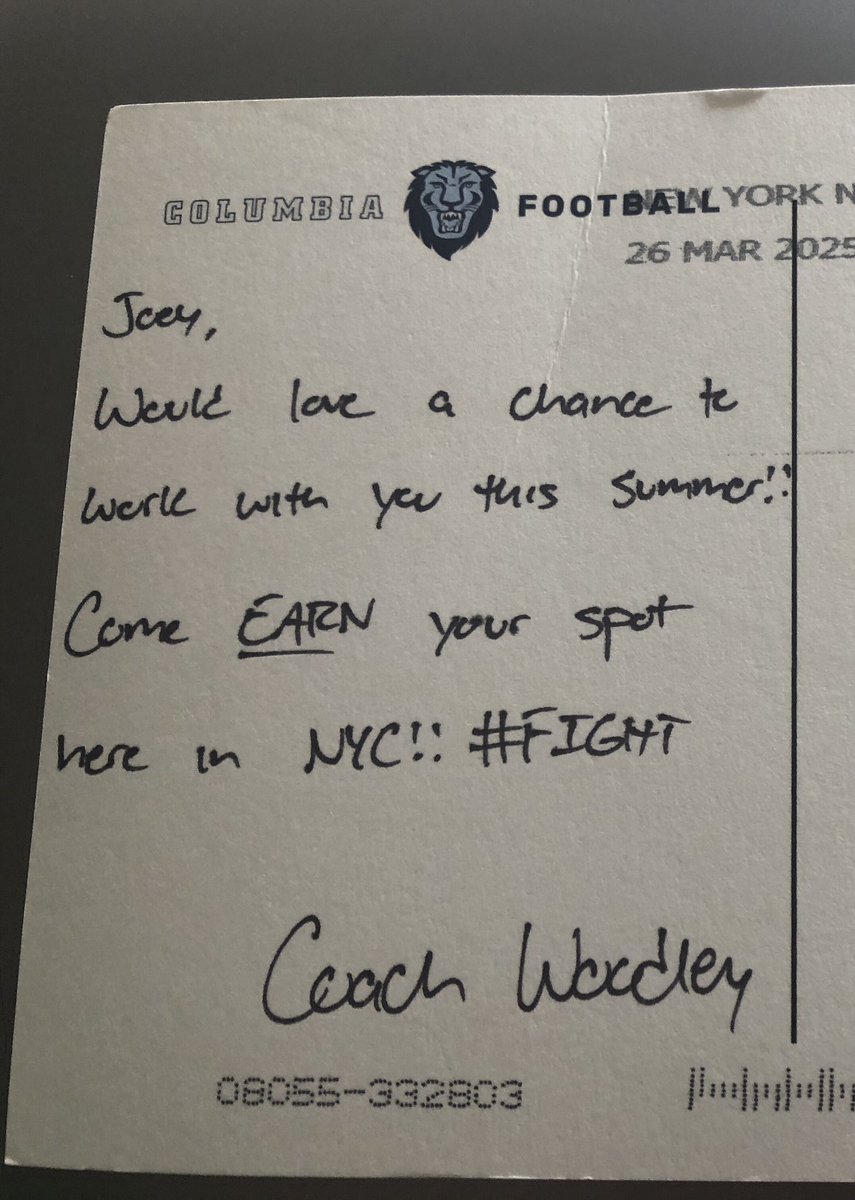 COLUMBIA FOOTBALL
NEW YORK N
26 MAR 2025
Joey,
Would love a chance to
work with you this summer!!
Come EARN your spot
here in NYC!! #FIGHT
Coach Woodley
08055-332803